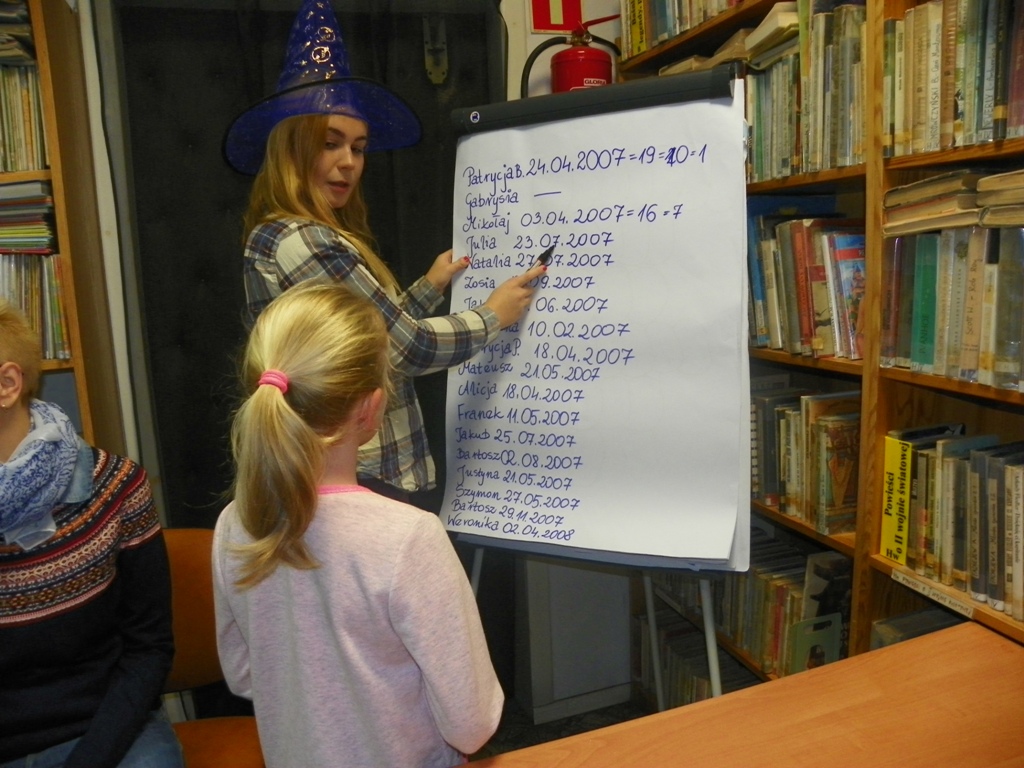 Patrycja B. 24.04.2007=19=10=1
Gabrysia —
Mikołaj 03.04.2007=16=7
Julia 23.07.2007
Natalia 27.07.2007
Zosia 09.2007
06.2007
10.02.2007
P. 18.04.2007
Mateusz 21.05.2007
Alicja 18.04.2007
Franek 11.05.2007
Jakub 25.07.2007
Bartosz 02.08.2007
Justyna 21.05.2007
Szymon 27.05.2007
Bartosz 29.11.2007
Weronika 02.04.2008
GLORIA
Powieści
o II wojnie światowej